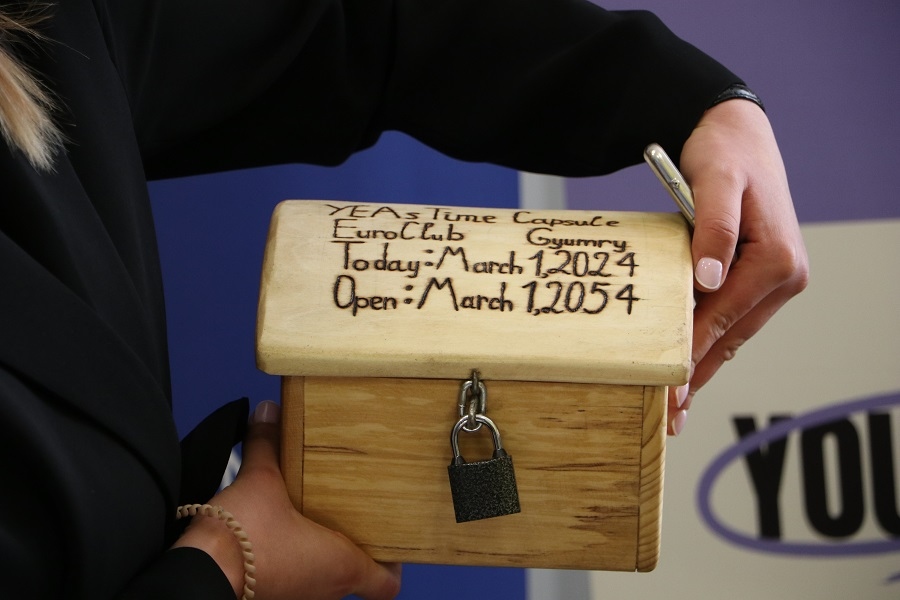 YEAs Time Capsule
EuroClub Gyumry
Today: March 1,2024
Open: March 1,2054
YOU